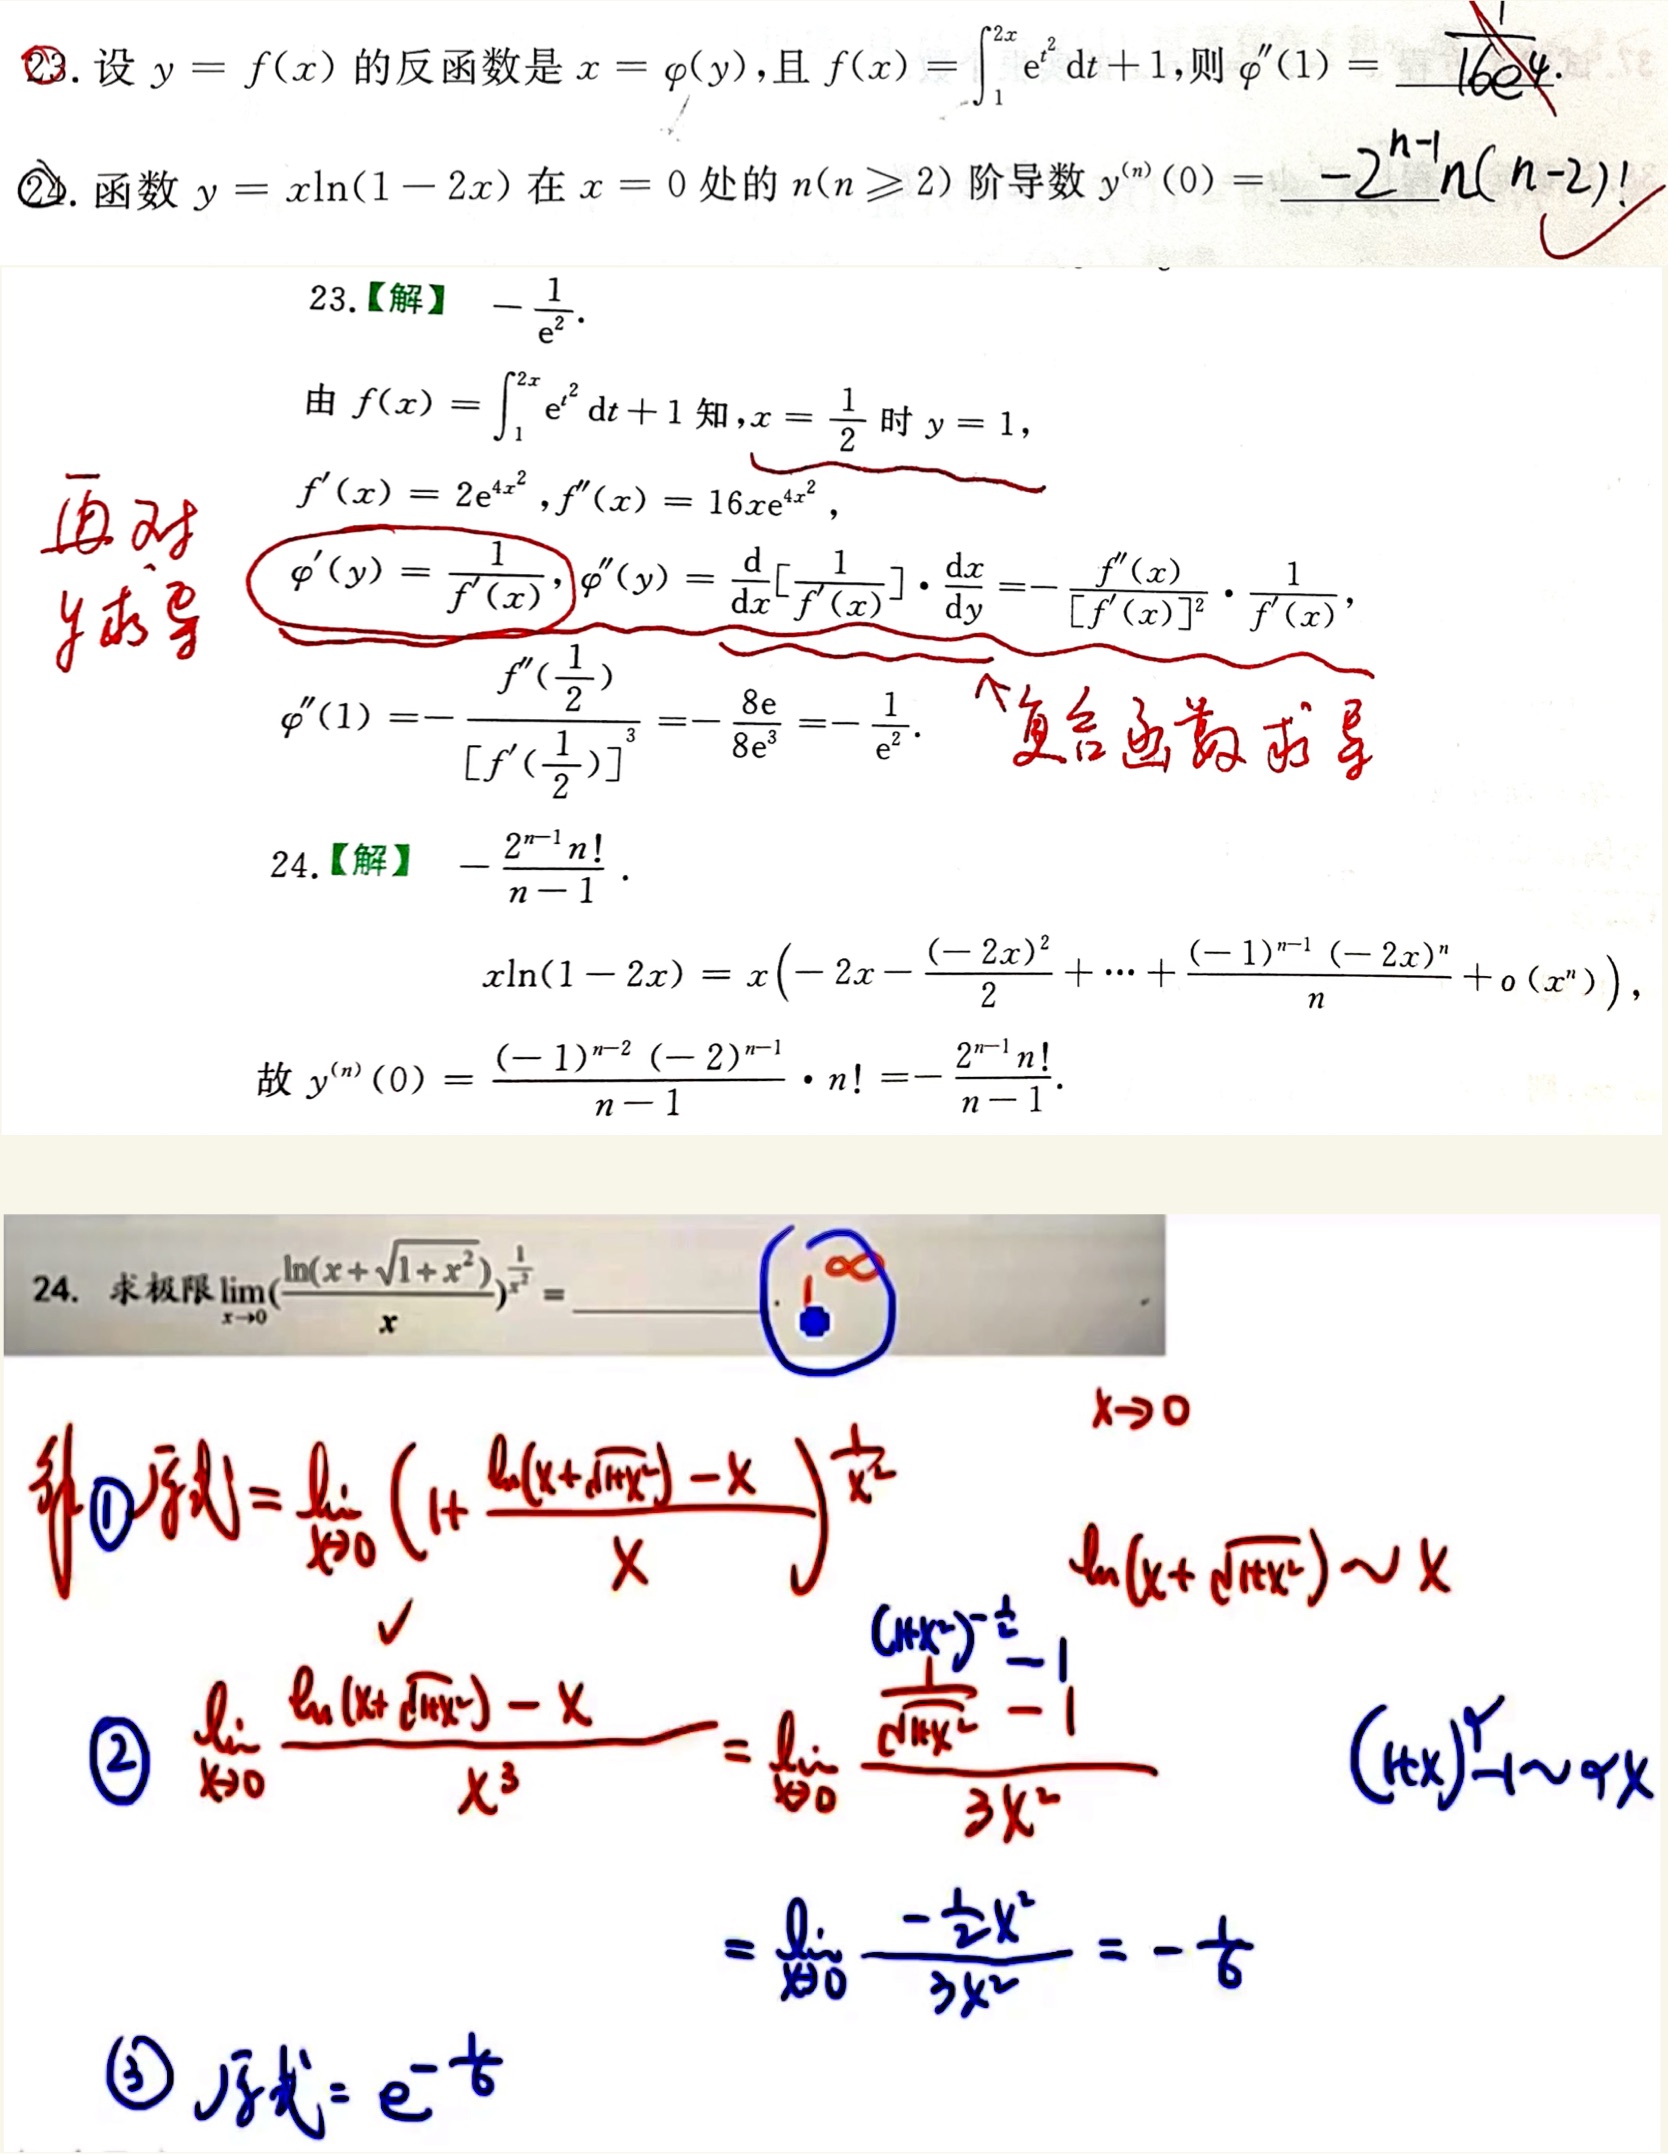 23. 设 y = f(x) 的反函数是 x = φ(y),且 f(x) = ∫₁^{2x} e^{t²} dt + 1,则 φ″(1) = 1/(16e⁴).
24. 函数 y = xln(1 − 2x) 在 x = 0 处的 n(n ⩾ 2) 阶导数 y⁽ⁿ⁾(0) = −2^{n−1}n(n−2)!
23.【解】 −1/e².
由 f(x) = ∫₁^{2x} e^{t²} dt + 1 知,x = 1/2 时 y = 1,
f′(x) = 2e^{4x²},f″(x) = 16xe^{4x²},
再对
y求导
φ′(y) = 1/f′(x),φ″(y) = d/dx[1/f′(x)]·dx/dy = −f″(x)/[f′(x)]²·1/f′(x),
φ″(1) = −f″(1/2)/[f′(1/2)]³ = −8e/8e³ = −1/e².
↑复合函数求导
24.【解】 −2^{n−1}n!/(n−1).
xln(1 − 2x) = x(−2x − (−2x)²/2 + ⋯ + (−1)^{n−1}(−2x)ⁿ/n + o(xⁿ)),
故 y⁽ⁿ⁾(0) = (−1)^{n−2}(−2)^{n−1}/(n−1)·n! = −2^{n−1}n!/(n−1).
24. 求极限 lim_{x→0}(ln(x+√(1+x²))/x)^{1/x²} = ________. 1^∞
x→0
解①原式 = lim_{x→0}(1+(ln(x+√(1+x²))−x)/x)^{1/x²}
ln(x+√(1+x²))~x
(1+x²)^{−1/2}−1
② lim_{x→0} (ln(x+√(1+x²))−x)/x³ = lim_{x→0} (1/√(1+x²)−1)/3x²
(1+x)^α−1~αx
= lim_{x→0} (−½x²)/3x² = −1/6
③ 原式 = e^{−1/6}